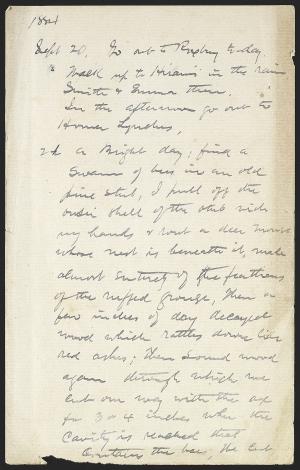 1884
Sept 20. Go out to Roxbury to-day
Walk up to Hiram's in the rain
Smith & Emma there.
In the afternoon go out to
Homer Lynches,
21 a Bright day; find a
Swarm of bees in an old
pine stub, I pull off the
outer shell of the stub with
my hands & rout a deer mouse
whose nest is beneath it, made
almost entirely of the feathers
of the ruffed grouse, Then a
few inches of dry decayed
wood which rattles down like
red ashes; Then sound wood
again through which we
cut our way with the ax
for 3 or 4 inches when the
Cavity is reached that
Contains the bees, The